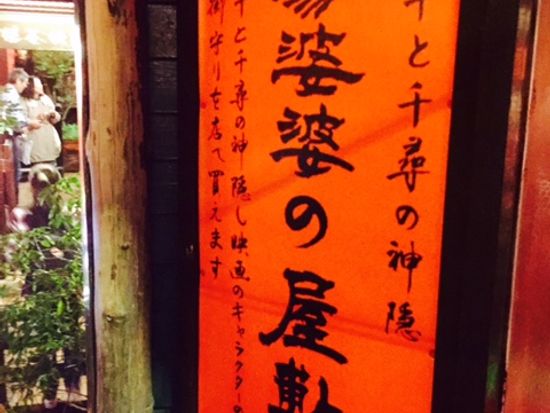 千と千尋の神隠
湯婆婆の屋
千と千尋の神隠し映画のキャラクターの
御守りを店で買えます